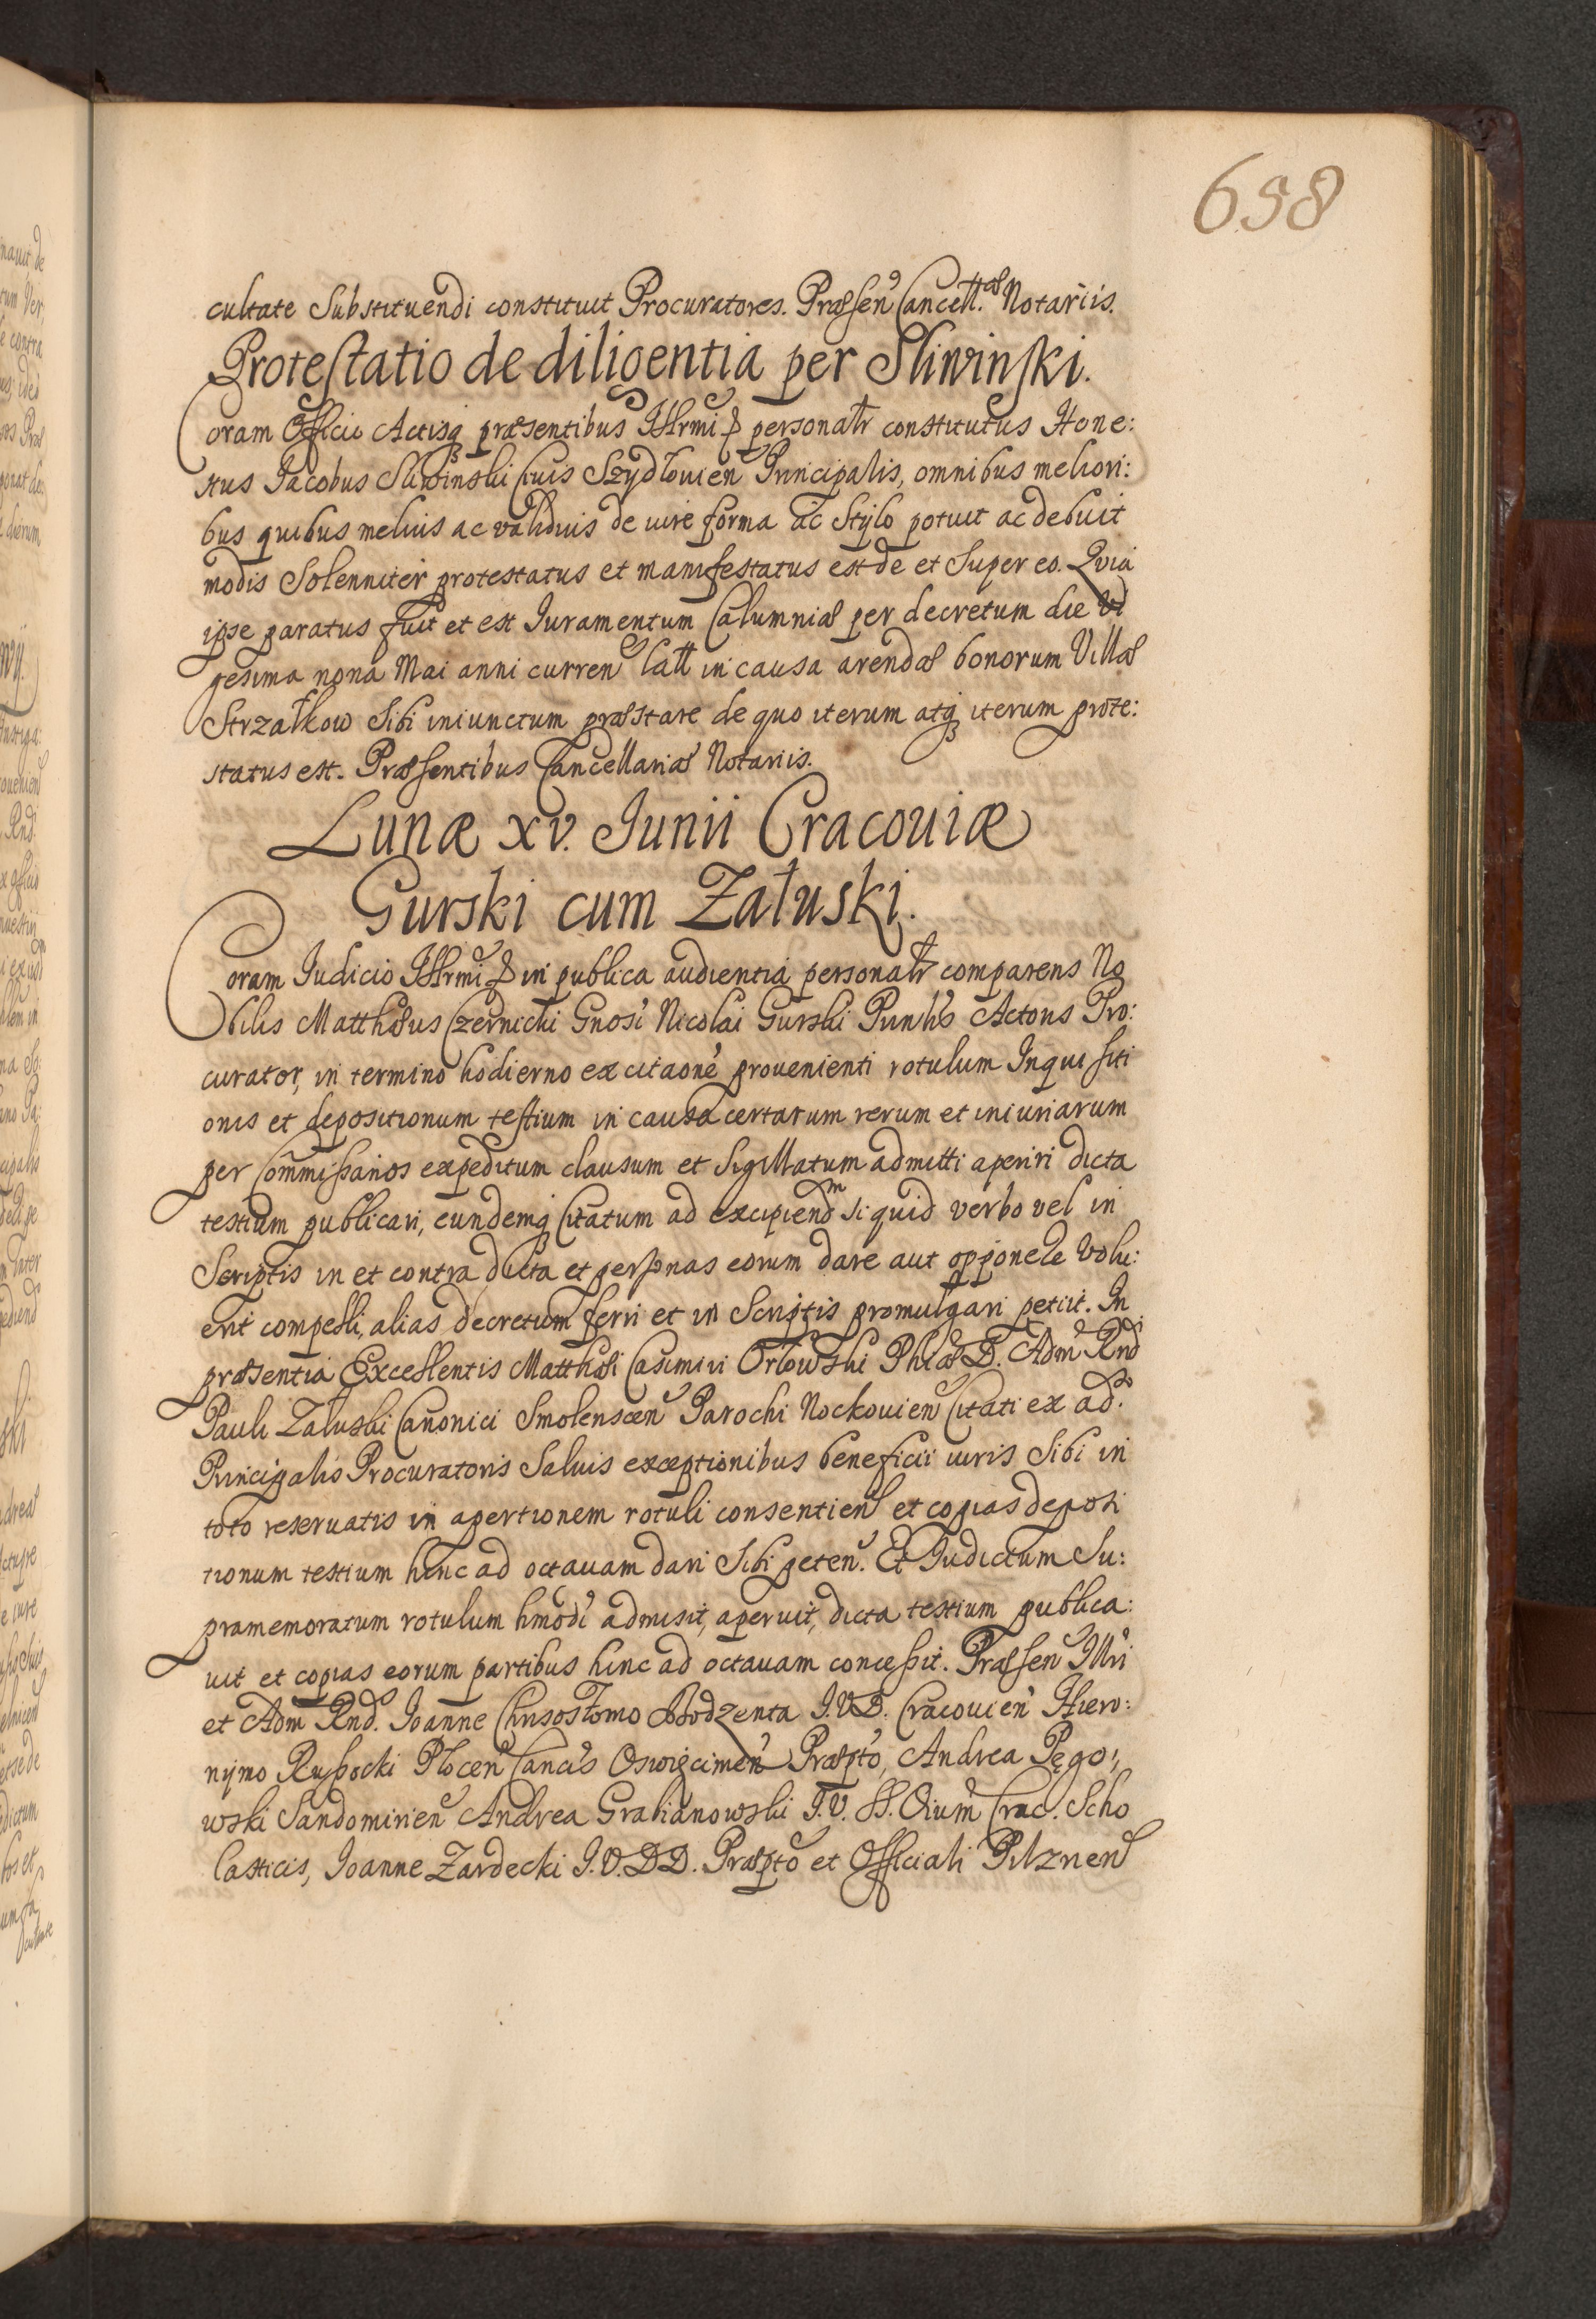 658
cultate Substituendi constituit Procuratores. Præsen Cancell.æ Notariis.
Protestatio de diligentia per Sliwinski.
Coram Officio Actisq præsentibus Illrmi & personalr constitutus Hone:
stus Jacobus Sliwinski Civis Szydlovien Principalis, omnibus meliori:
bus quibus melius ac validius de iure forma ac Stylo potuit ac debuit
modis Solenniter protestatus et manifestatus est de et Super eo. Quia
ipse paratus fuit et est Iuramentum Calumniæ per decretum die Vi
gesima nona Mai anni curren latt in causa arendæ bonorum Villæ
Strzałkow Sibi iniunctum præstare de quo iterum atq iterum prote:
status est. Præsentibus Cancellariæ Notariis.
Lunæ xv. Junii Cracoviæ
Gurski cum Załuski.
Coram Iudicio Illrmi & in publica audientia personalr comparens No
bilis Matthæus Czernicki Gnosi Nicolai Gurski Punlis Actoris Pro:
curator, in termino hodierno ex citaone provenienti rotulum Inquisiti
onis et depositionum testium in causa certarum rerum et iniuriarum
per Commissarios expeditum clausum et Sigillatum admitti aperiri dicta
testium publicari, eundemq Citatum ad excipiendm si quid verbo vel in
Scriptis in et contra dicta et personas eorum dare aut opponere Volu:
erit compelli, alias decretum ferri et in Scriptis promulgari petiit. In
præsentia Excellentis Matthæi Casimiri Orłowski Phiæ D. Adm Rndi
Pauli Załuski Canonici Smolenscen Parochi Nockovien Citati ex ad.so
Principalis Procuratoris Salvis exceptionibus beneficii iuris Sibi in
toto reservatis in apertionem rotuli consentien et copias deposi
tionum testium hinc ad octavam dari Sibi peten. Et Iudicium Su:
pramemoratum rotulum hmodi admisit, aperuit, dicta testium publica:
vit et copias eorum partibus hinc ad octavam concessit. Præsen Illri
et Adm Rnd. Joanne Chrisostomo Bodzenta J.V.D. Cracovien Hiero:
nymo Rupocki Plocen Cancis Oswięcimen Præpto, Andrea Pęgo:
wski Sandomirien Andrea Grabianowski J.V. SS. Oium Crac. Scho
lasticis, Joanne Zardecki J.V.DD. Præpto et Officiali Pilznen